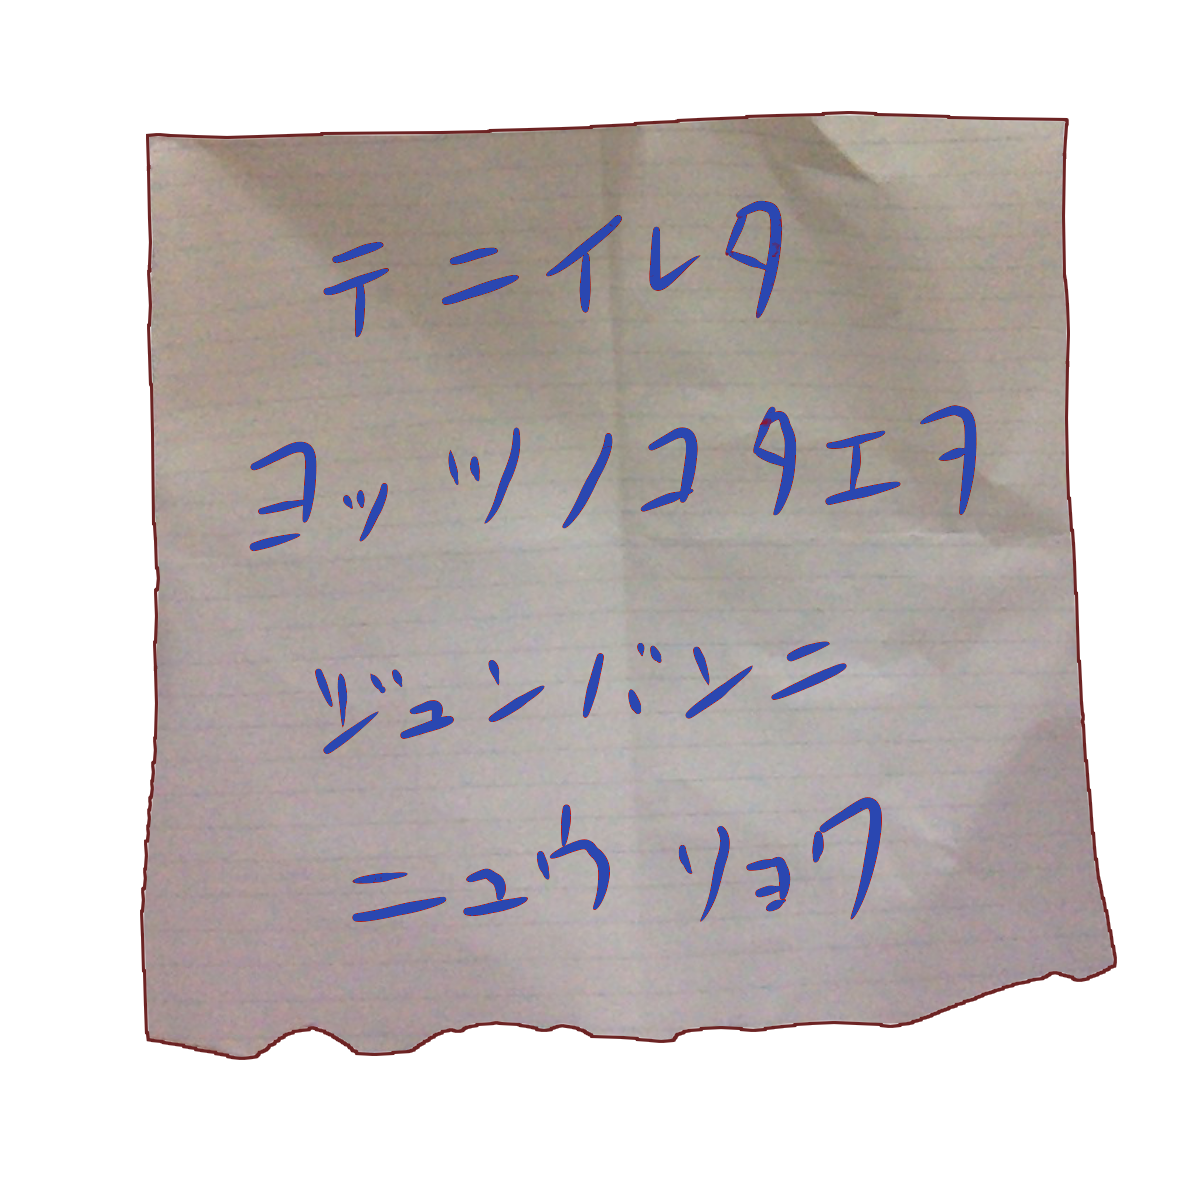 テニイレタ
ヨッツノコタエヲ
ジュンバンニ
ニュウリョク